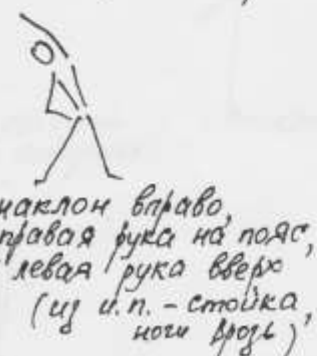 наклон вправо,
правая рука на пояс,
левая рука вверх
(из и.п. - стойка,
ноги врозь)